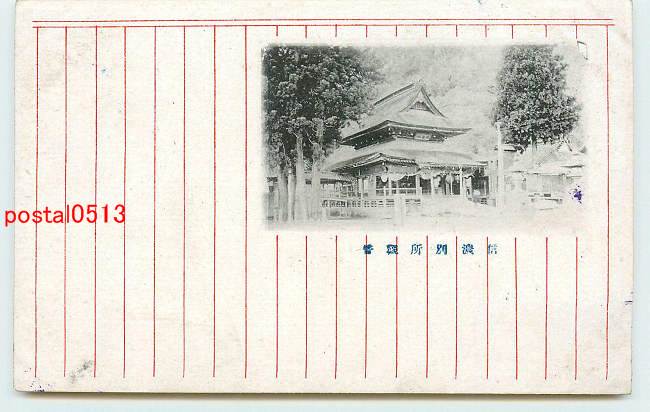 postal0513
信濃別所觀音